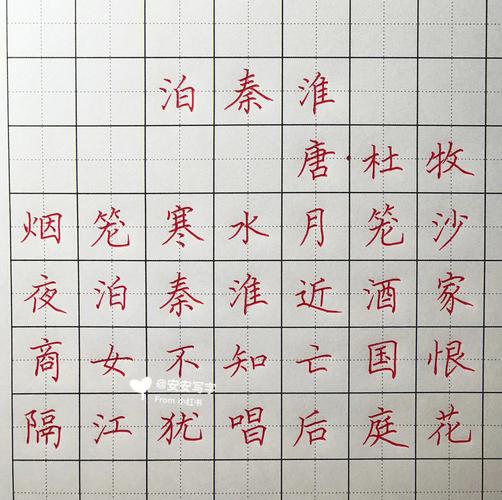 泊秦淮
唐·杜牧
烟笼寒水月笼沙
夜泊秦淮近酒家
商女不知亡国恨
@安安写字
From 小红书
隔江犹唱后庭花